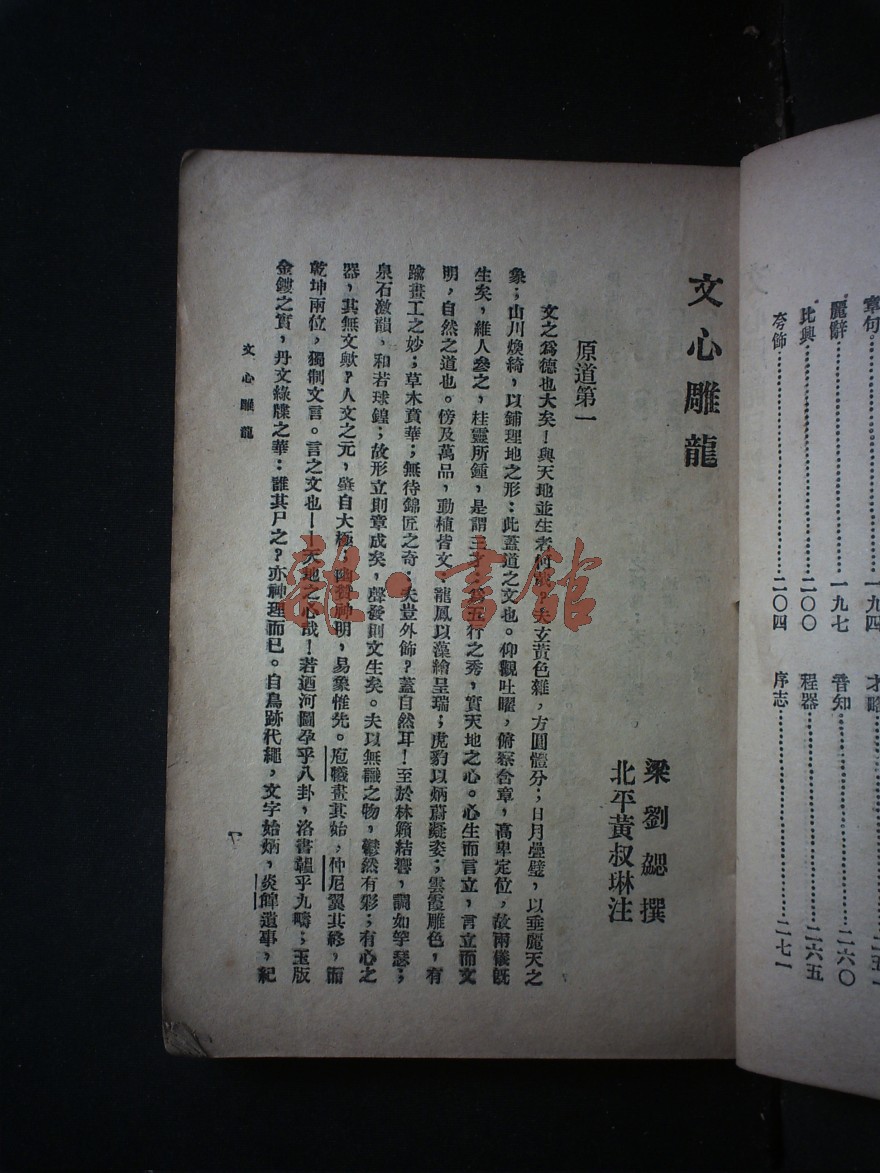 章句……一九四 才略……二五一
麗辭……一九七 音知……二六〇
比興……二〇〇 程器……二六五
夸飾……二〇四 序志……二七一
文心雕龍
梁劉勰撰
北平黃叔琳注
原道第一
文之爲德也大矣!與天地並生者何哉?夫玄黃色雜,方圓體分;日月疊璧,以垂麗天之
象;山川煥綺,以鋪理地之形:此蓋道之文也。仰觀吐曜,俯察含章,高卑定位,故兩儀旣
生矣,維人參之,桂靈所鍾,是謂三才:爲五行之秀,實天地之心。心生而言立,言立而文
明,自然之道也。傍及萬品,動植皆文:龍鳳以藻繪呈瑞;虎豹以炳蔚凝姿;雲霞雕色,有
踰畫工之妙;草木賁華;無待錦匠之奇:夫豈外飾?蓋自然耳!至於林籟結響,調如竽瑟;
泉石激韻,和若球鍠;故形立則章成矣,聲發則文生矣。夫以無識之物,鬱然有彩;有心之
器,其無文歟?人文之元,肇自大極;幽贊神明,易象惟先。庖犧畫其始,仲尼翼其終,而
乾坤兩位,獨制文言。言之文也——天地之心哉!若迺河圖孕乎八卦,洛書韞乎九疇;玉版
金鏤之實,丹文綠牒之華:誰其尸之?亦神理而已。自鳥跡代繩,文字始炳,炎皥遺事,紀
文心雕龍
一
雜·書館